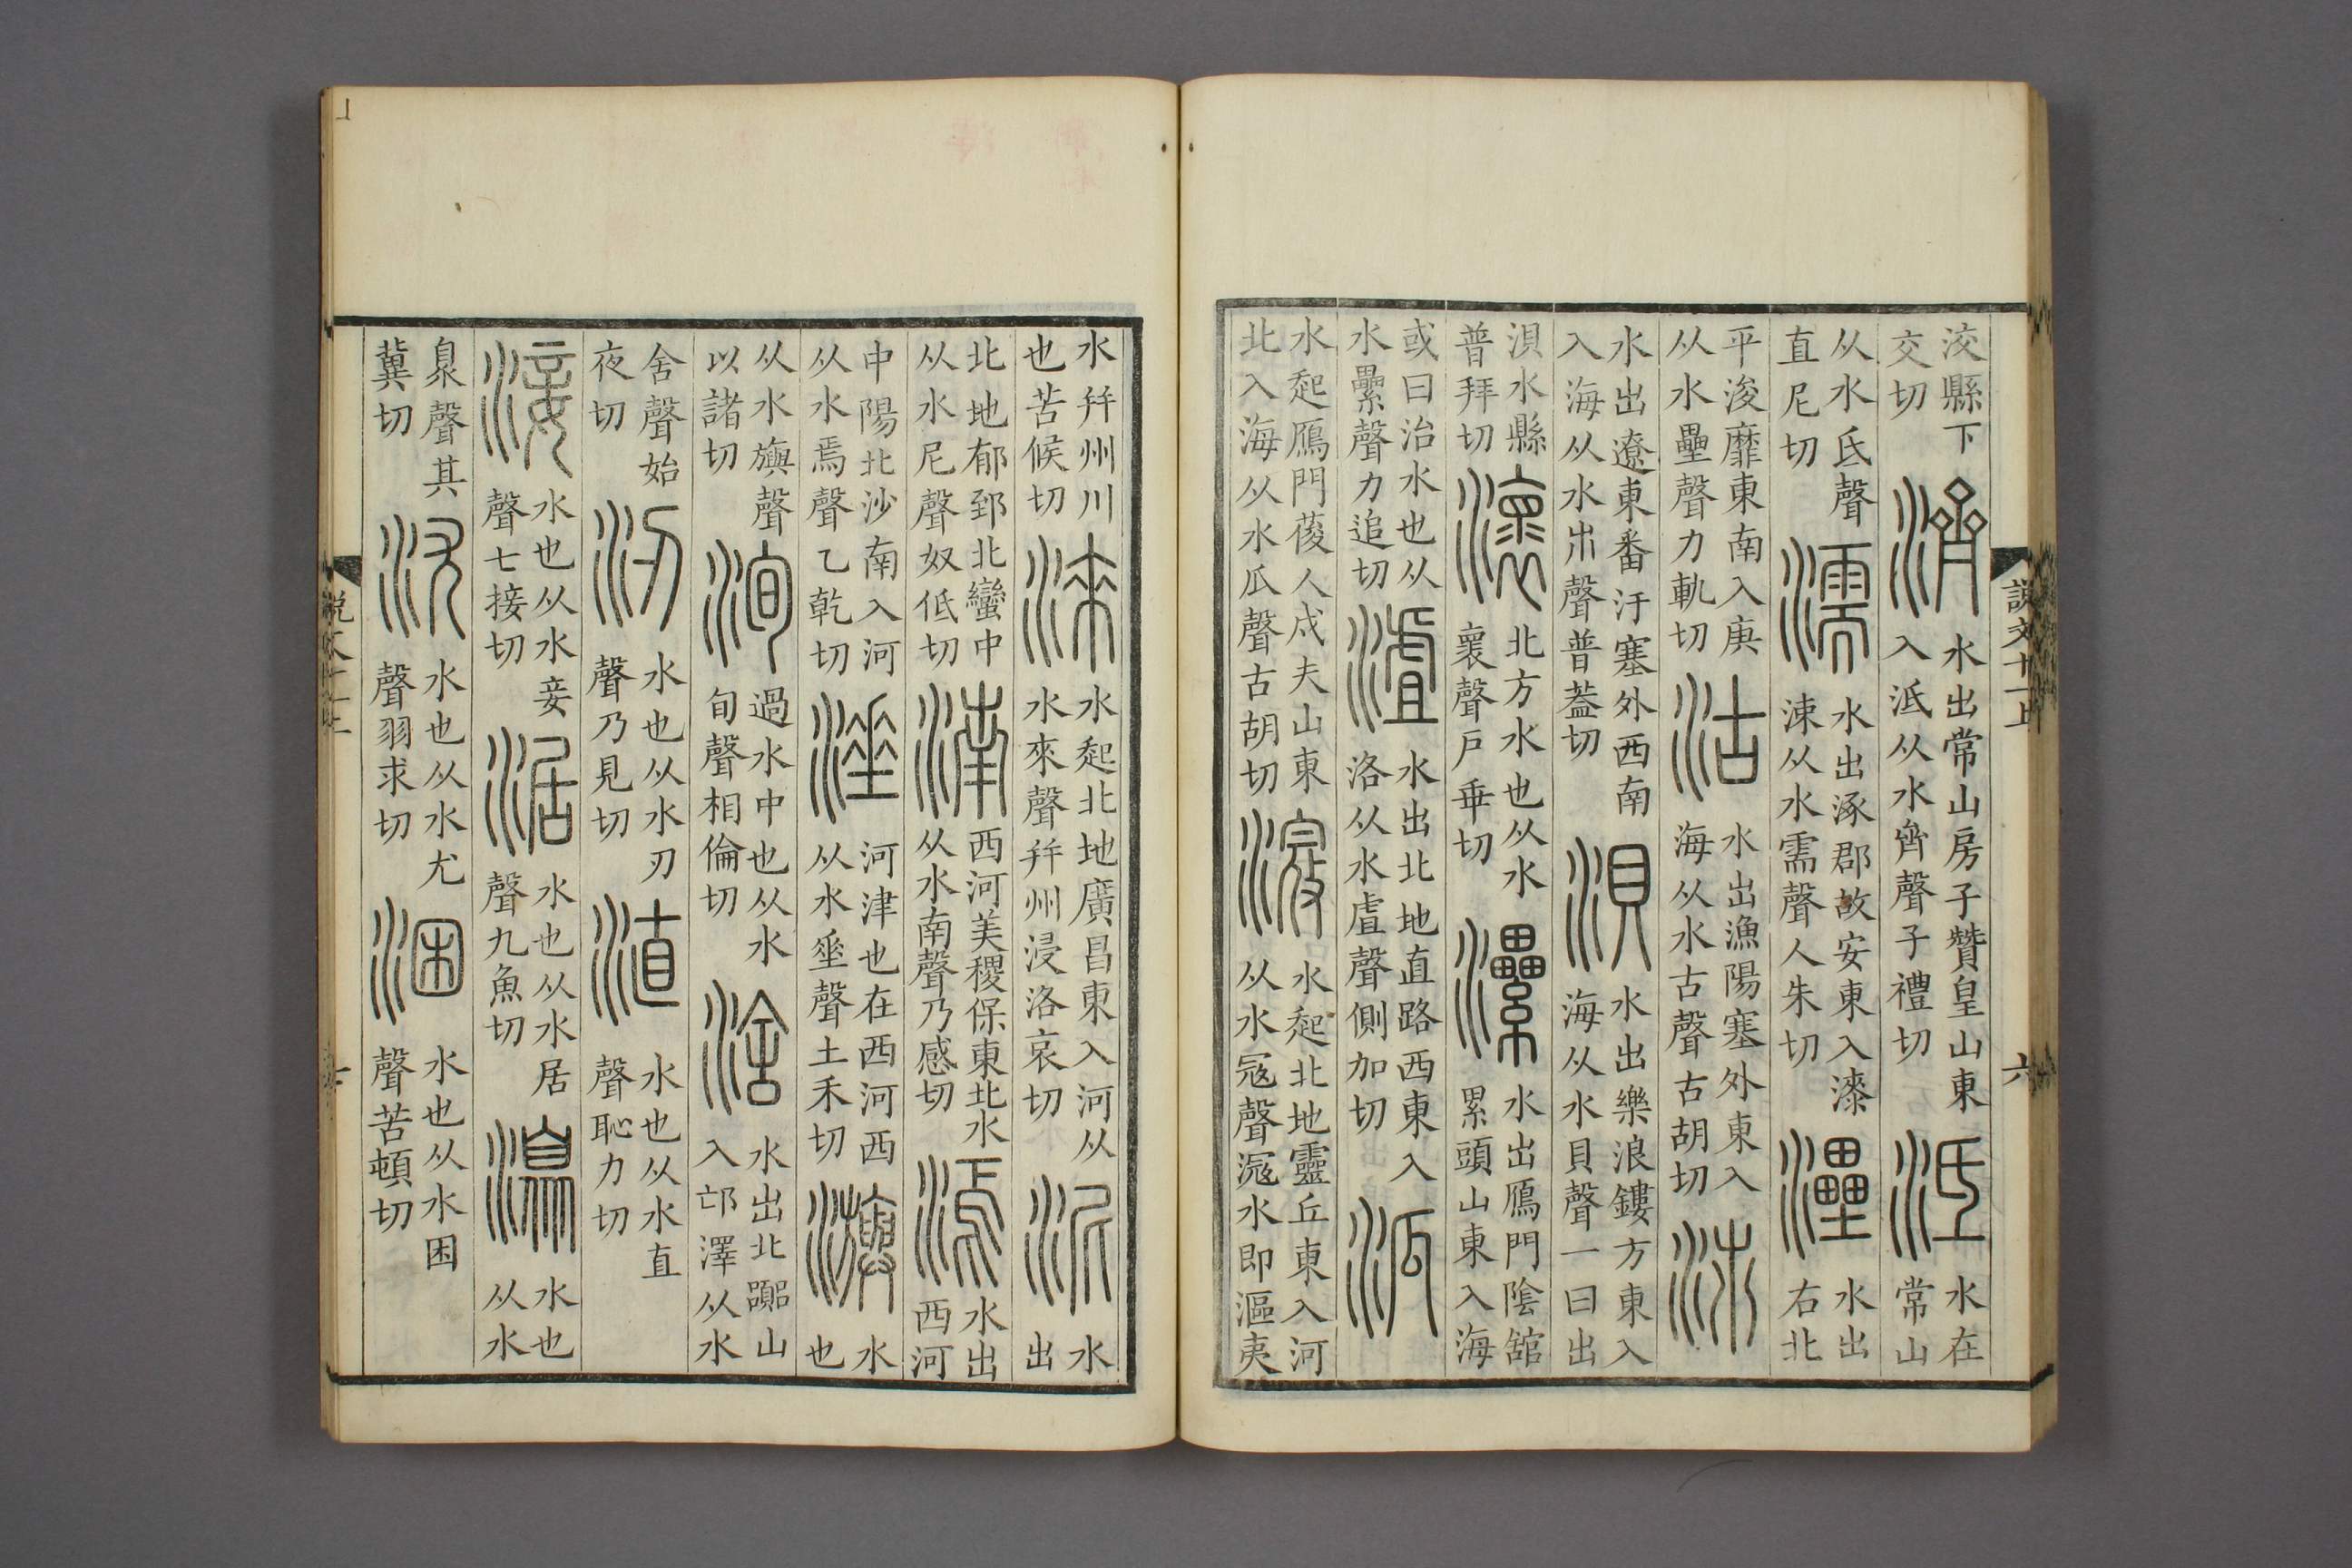 說文十一上 六
洨縣下交切濟水出常山房子贊皇山東入泜从水齊聲子禮切泜水在常山
从水氐聲直尼切濡水出涿郡故安東入漆涑从水需聲人朱切灅水出右北
平浚靡東南入庚从水壘聲力軌切沽水出漁陽塞外東入海从水古聲古胡切沛
水出遼東番汗塞外西南入海从水巿聲普蓋切浿水出樂浪鏤方東入海从水貝聲一曰出
浿水縣普拜切瀤北方水也从水褱聲戶乖切㶟水出鴈門陰館累頭山東入海
或曰治水也从水纍聲力追切水出北地直路西東入洛从水虘聲側加切泒
水起鴈門葰人戍夫山東北入海从水瓜聲古胡切滱水起北地靈丘東入河从水寇聲滱水即漚夷
水幷州川也苦候切淶水起北地廣昌東入河从水來聲幷州浸洛哀切泥水出
北地郁郅北蠻中从水尼聲奴低切湳西河美稷保東北水从水南聲乃感切漹水出西河
中陽北沙南入河从水焉聲乙乾切涶河津也在西河西从水垂聲土禾切水也
从水旟聲以諸切洵過水中也从水旬聲相倫切涻水出北囂山入邙澤从水
舍聲始夜切㲽水也从水刃聲乃見切淔水也从水直聲恥力切
淁水也从水妾聲七接切涺水也从水居聲九魚切水也从水
臮聲其冀切沋水也从水尤聲羽求切涃水也从水困聲苦頓切
說文十一上